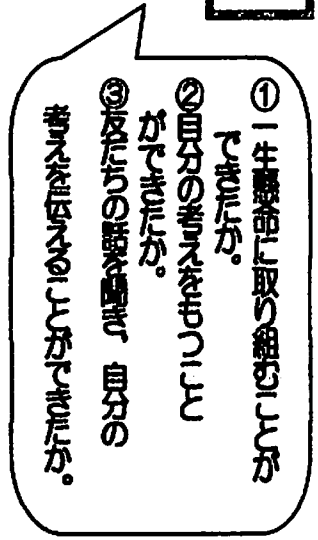 ①一生懸命に取り組むことが
できたか。
②自分の考えをもつこと
ができたか。
③友だちの話を聞き、自分の
考えを伝えることができたか。